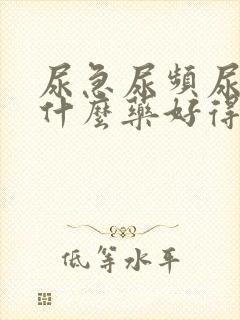 尿急尿頻尿
什麼藥好得
低等水平